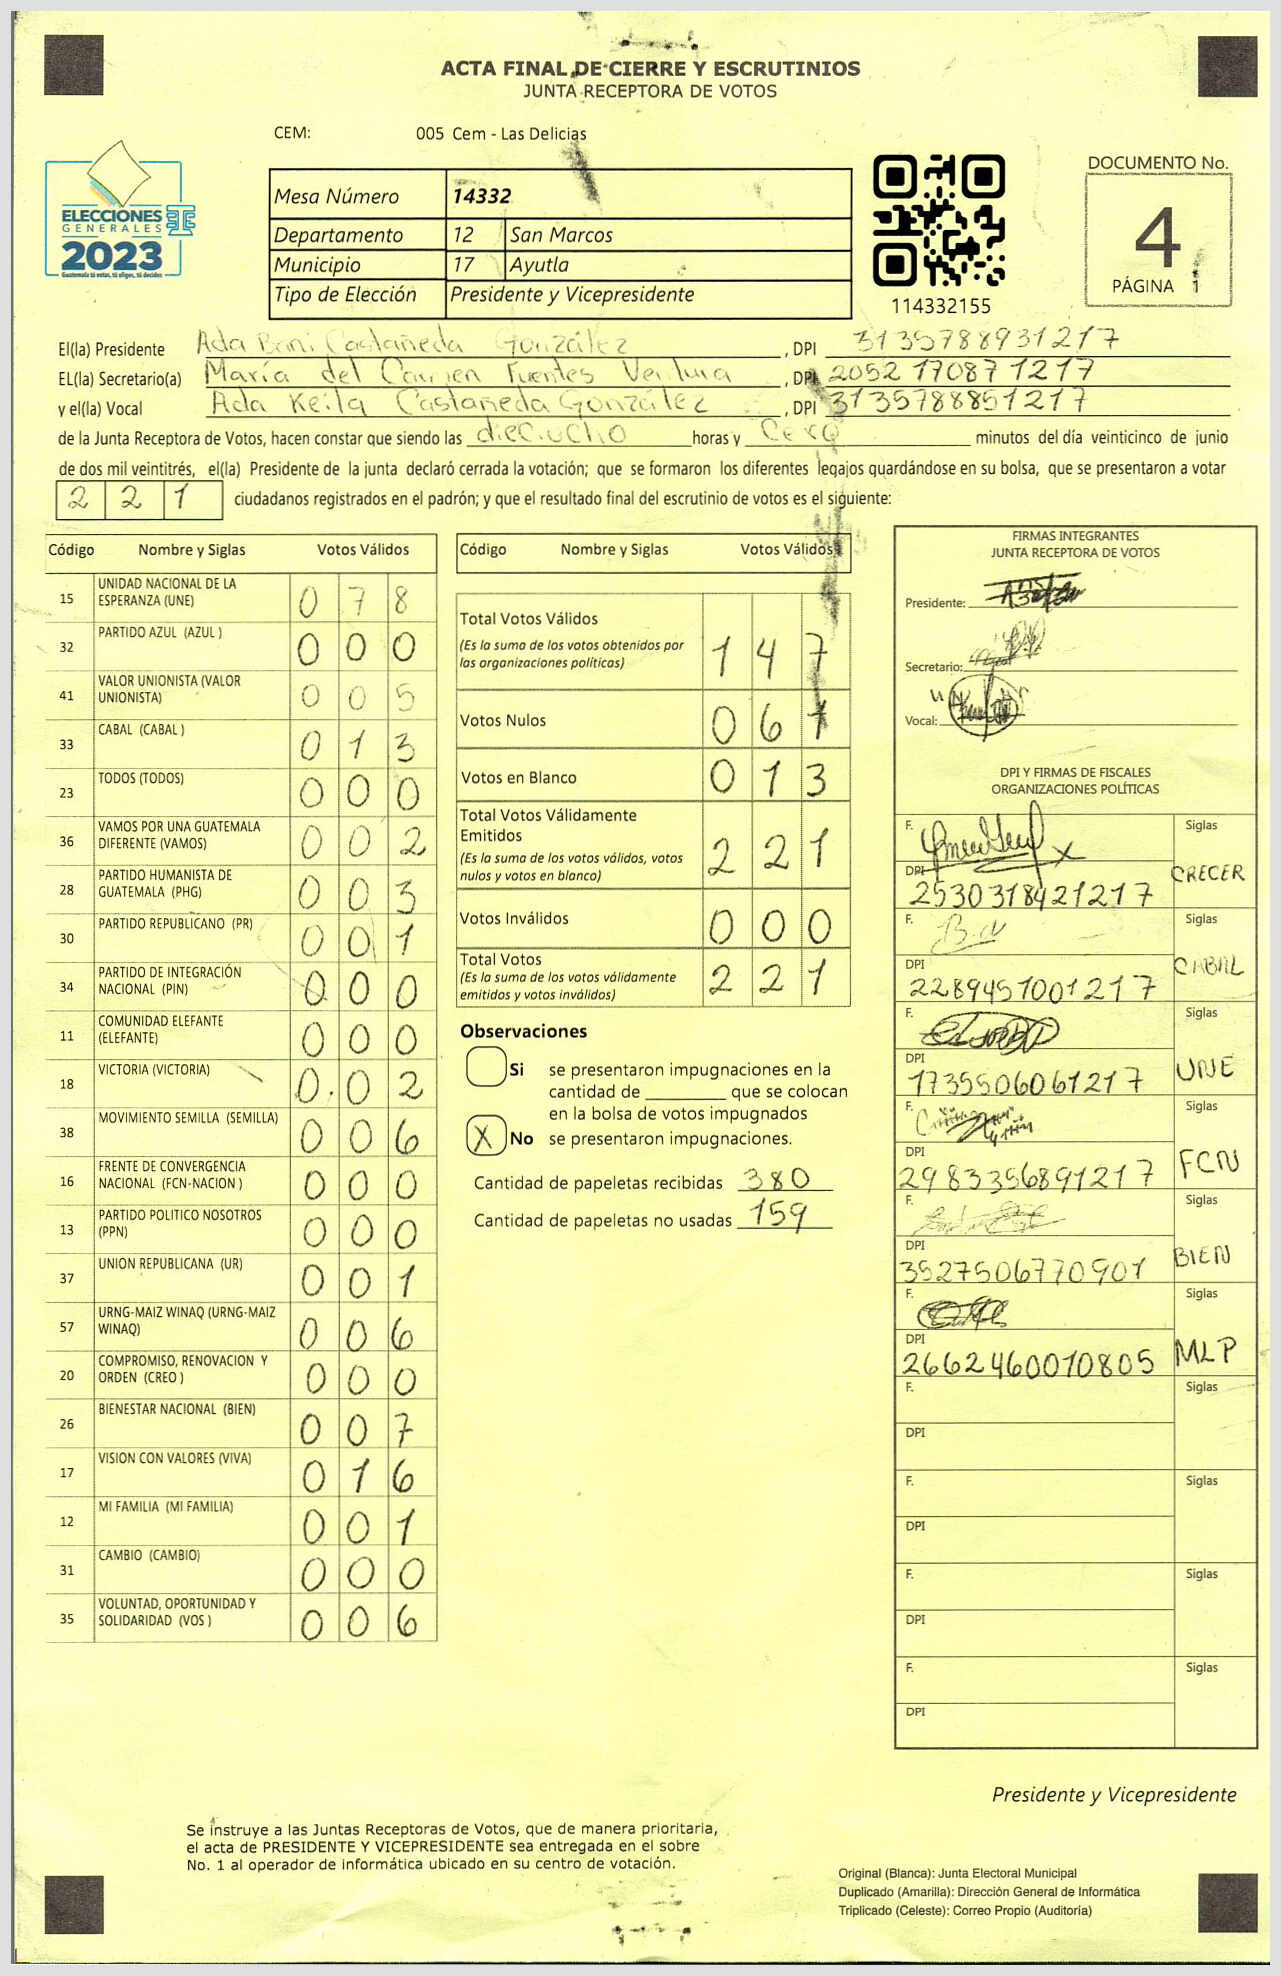 ACTA FINAL DE CIERRE Y ESCRUTINIOS
JUNTA RECEPTORA DE VOTOS
CEM: 005 Cem - Las Delicias
ELECCIONES
GENERALES
2023
Guatemala tú votas, tú eliges, tú decides
Mesa Número 14332
Departamento 12 San Marcos
Municipio 17 Ayutla
Tipo de Elección Presidente y Vicepresidente
114332155
DOCUMENTO No.
4
PÁGINA 1
El(la) Presidente Ada Castañeda González, DPI 3135788931217
EL(la) Secretario(a) María del Carmen Fuentes Ventura, DPI 2052170871217
y el(la) Vocal Ada Keila Castañeda González, DPI 3135788851217
de la Junta Receptora de Votos, hacen constar que siendo las dieciocho horas y cero minutos del día veinticinco de junio
de dos mil veintitrés, el(la) Presidente de la junta declaró cerrada la votación; que se formaron los diferentes legajos guardándose en su bolsa, que se presentaron a votar
221 ciudadanos registrados en el padrón; y que el resultado final del escrutinio de votos es el siguiente:
Código Nombre y Siglas Votos Válidos
15 UNIDAD NACIONAL DE LA ESPERANZA (UNE) 078
32 PARTIDO AZUL (AZUL ) 000
41 VALOR UNIONISTA (VALOR UNIONISTA) 005
33 CABAL (CABAL ) 013
23 TODOS (TODOS) 000
36 VAMOS POR UNA GUATEMALA DIFERENTE (VAMOS) 002
28 PARTIDO HUMANISTA DE GUATEMALA (PHG) 003
30 PARTIDO REPUBLICANO (PR) 001
34 PARTIDO DE INTEGRACIÓN NACIONAL (PIN) 000
11 COMUNIDAD ELEFANTE (ELEFANTE) 000
18 VICTORIA (VICTORIA) 002
38 MOVIMIENTO SEMILLA (SEMILLA) 006
16 FRENTE DE CONVERGENCIA NACIONAL (FCN-NACION ) 000
13 PARTIDO POLITICO NOSOTROS (PPN) 000
37 UNION REPUBLICANA (UR) 001
57 URNG-MAIZ WINAQ (URNG-MAIZ WINAQ) 006
20 COMPROMISO, RENOVACION Y ORDEN (CREO ) 000
26 BIENESTAR NACIONAL (BIEN) 007
17 VISION CON VALORES (VIVA) 016
12 MI FAMILIA (MI FAMILIA) 001
31 CAMBIO (CAMBIO) 000
35 VOLUNTAD, OPORTUNIDAD Y SOLIDARIDAD (VOS ) 006
Código Nombre y Siglas Votos Válidos
Total Votos Válidos
(Es la suma de los votos obtenidos por las organizaciones políticas) 147
Votos Nulos 061
Votos en Blanco 013
Total Votos Válidamente Emitidos
(Es la suma de los votos válidos, votos nulos y votos en blanco) 221
Votos Inválidos 000
Total Votos
(Es la suma de los votos válidamente emitidos y votos inválidos) 221
Observaciones
Si se presentaron impugnaciones en la
cantidad de ________ que se colocan
en la bolsa de votos impugnados
X No se presentaron impugnaciones.
Cantidad de papeletas recibidas 380
Cantidad de papeletas no usadas 159
FIRMAS INTEGRANTES
JUNTA RECEPTORA DE VOTOS
Presidente:
Secretario:
Vocal:
DPI Y FIRMAS DE FISCALES
ORGANIZACIONES POLÍTICAS
F. Siglas
DPI 2530318421217 CRECER
F. Siglas
DPI 2289451001217 CABAL
F. Siglas
DPI 1735506061217 UNE
F. Siglas
DPI 2983356891217 FCN
F. Siglas
DPI 3527506770901 BIEN
F. Siglas
DPI 2662460010805 MLP
F. Siglas
DPI
F. Siglas
DPI
F. Siglas
DPI
F. Siglas
DPI
Presidente y Vicepresidente
Se instruye a las Juntas Receptoras de Votos, que de manera prioritaria,
el acta de PRESIDENTE Y VICEPRESIDENTE sea entregada en el sobre
No. 1 al operador de informática ubicado en su centro de votación.
Original (Blanca): Junta Electoral Municipal
Duplicado (Amarilla): Dirección General de Informática
Triplicado (Celeste): Correo Propio (Auditoría)